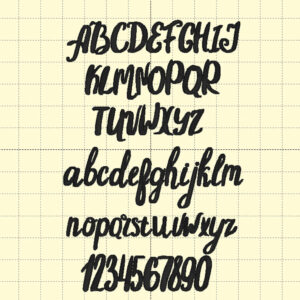 ABCDEFGHIJ
KLMNOPQR
TUVWXYZ
abcdefghijklm
nopqrstuvwxyz
1234567890